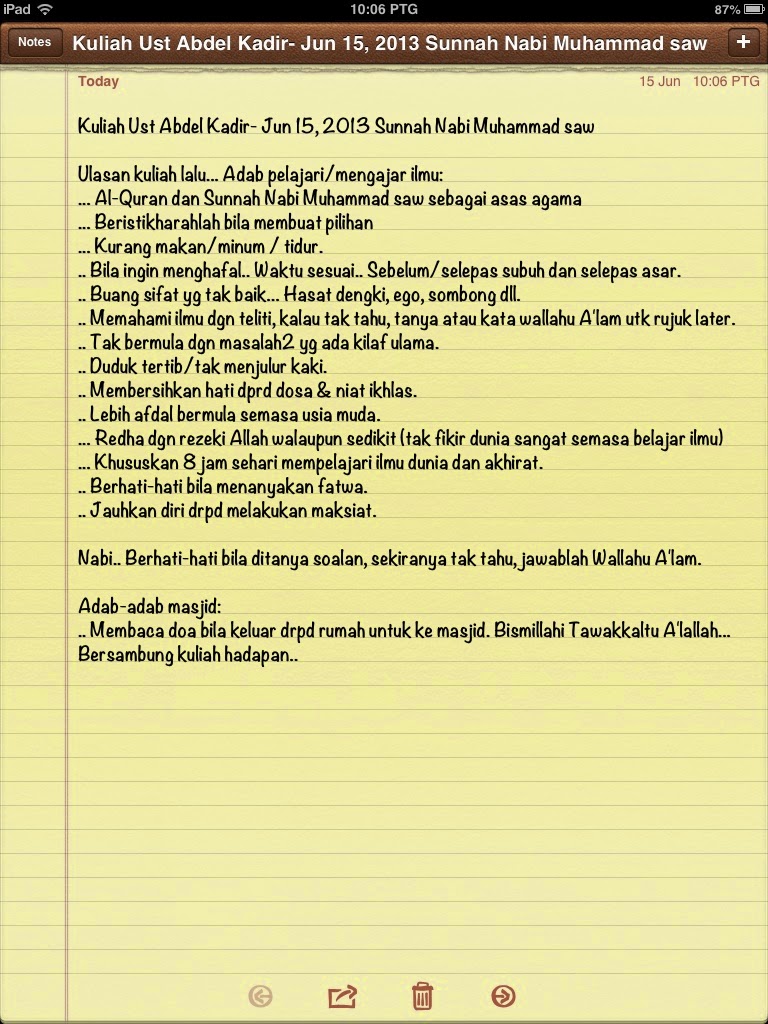 iPad 10:06 PTG 87%
Notes Kuliah Ust Abdel Kadir- Jun 15, 2013 Sunnah Nabi Muhammad saw +
Today 15 Jun 10:06 PTG
Kuliah Ust Abdel Kadir- Jun 15, 2013 Sunnah Nabi Muhammad saw
Ulasan kuliah lalu... Adab pelajari/mengajar ilmu:
... Al-Quran dan Sunnah Nabi Muhammad saw sebagai asas agama
... Beristikharahlah bila membuat pilihan
... Kurang makan/minum / tidur.
.. Bila ingin menghafal.. Waktu sesuai.. Sebelum/selepas subuh dan selepas asar.
.. Buang sifat yg tak baik... Hasat dengki, ego, sombong dll.
.. Memahami ilmu dgn teliti, kalau tak tahu, tanya atau kata wallahu A'lam utk rujuk later.
.. Tak bermula dgn masalah2 yg ada kilaf ulama.
.. Duduk tertib/tak menjulur kaki.
.. Membersihkan hati dprd dosa & niat ikhlas.
.. Lebih afdal bermula semasa usia muda.
... Redha dgn rezeki Allah walaupun sedikit (tak fikir dunia sangat semasa belajar ilmu)
... Khususkan 8 jam sehari mempelajari ilmu dunia dan akhirat.
.. Berhati-hati bila menanyakan fatwa.
.. Jauhkan diri drpd melakukan maksiat.
Nabi.. Berhati-hati bila ditanya soalan, sekiranya tak tahu, jawablah Wallahu A'lam.
Adab-adab masjid:
.. Membaca doa bila keluar drpd rumah untuk ke masjid. Bismillahi Tawakkaltu A'lallah...
Bersambung kuliah hadapan..